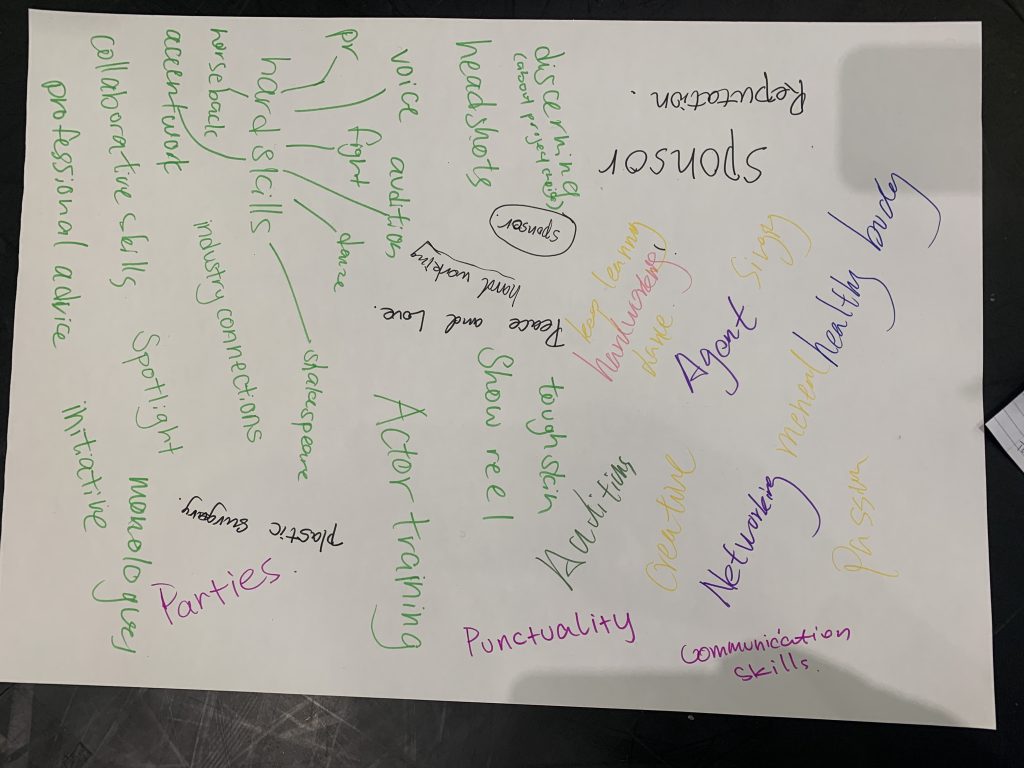 Reputation.
Sponsor
discerning
(about project choices)
headshots
voice audition
pr
fight
hard skills
horseback
accentwork
collaborative skills.
professional advice
dance
shakespeare
industry connections
Spotlight
initiative
monologues
Actor training
Show reel
tough skin
sponsor.
hard working
Peace and Love.
plastic surgary.
keep learning
hardworking!
dance.
Agent
Singing
healthy body
mental
Auditions
Creative
Networking
Passion
Parties
Punctuality
Communication
skills.